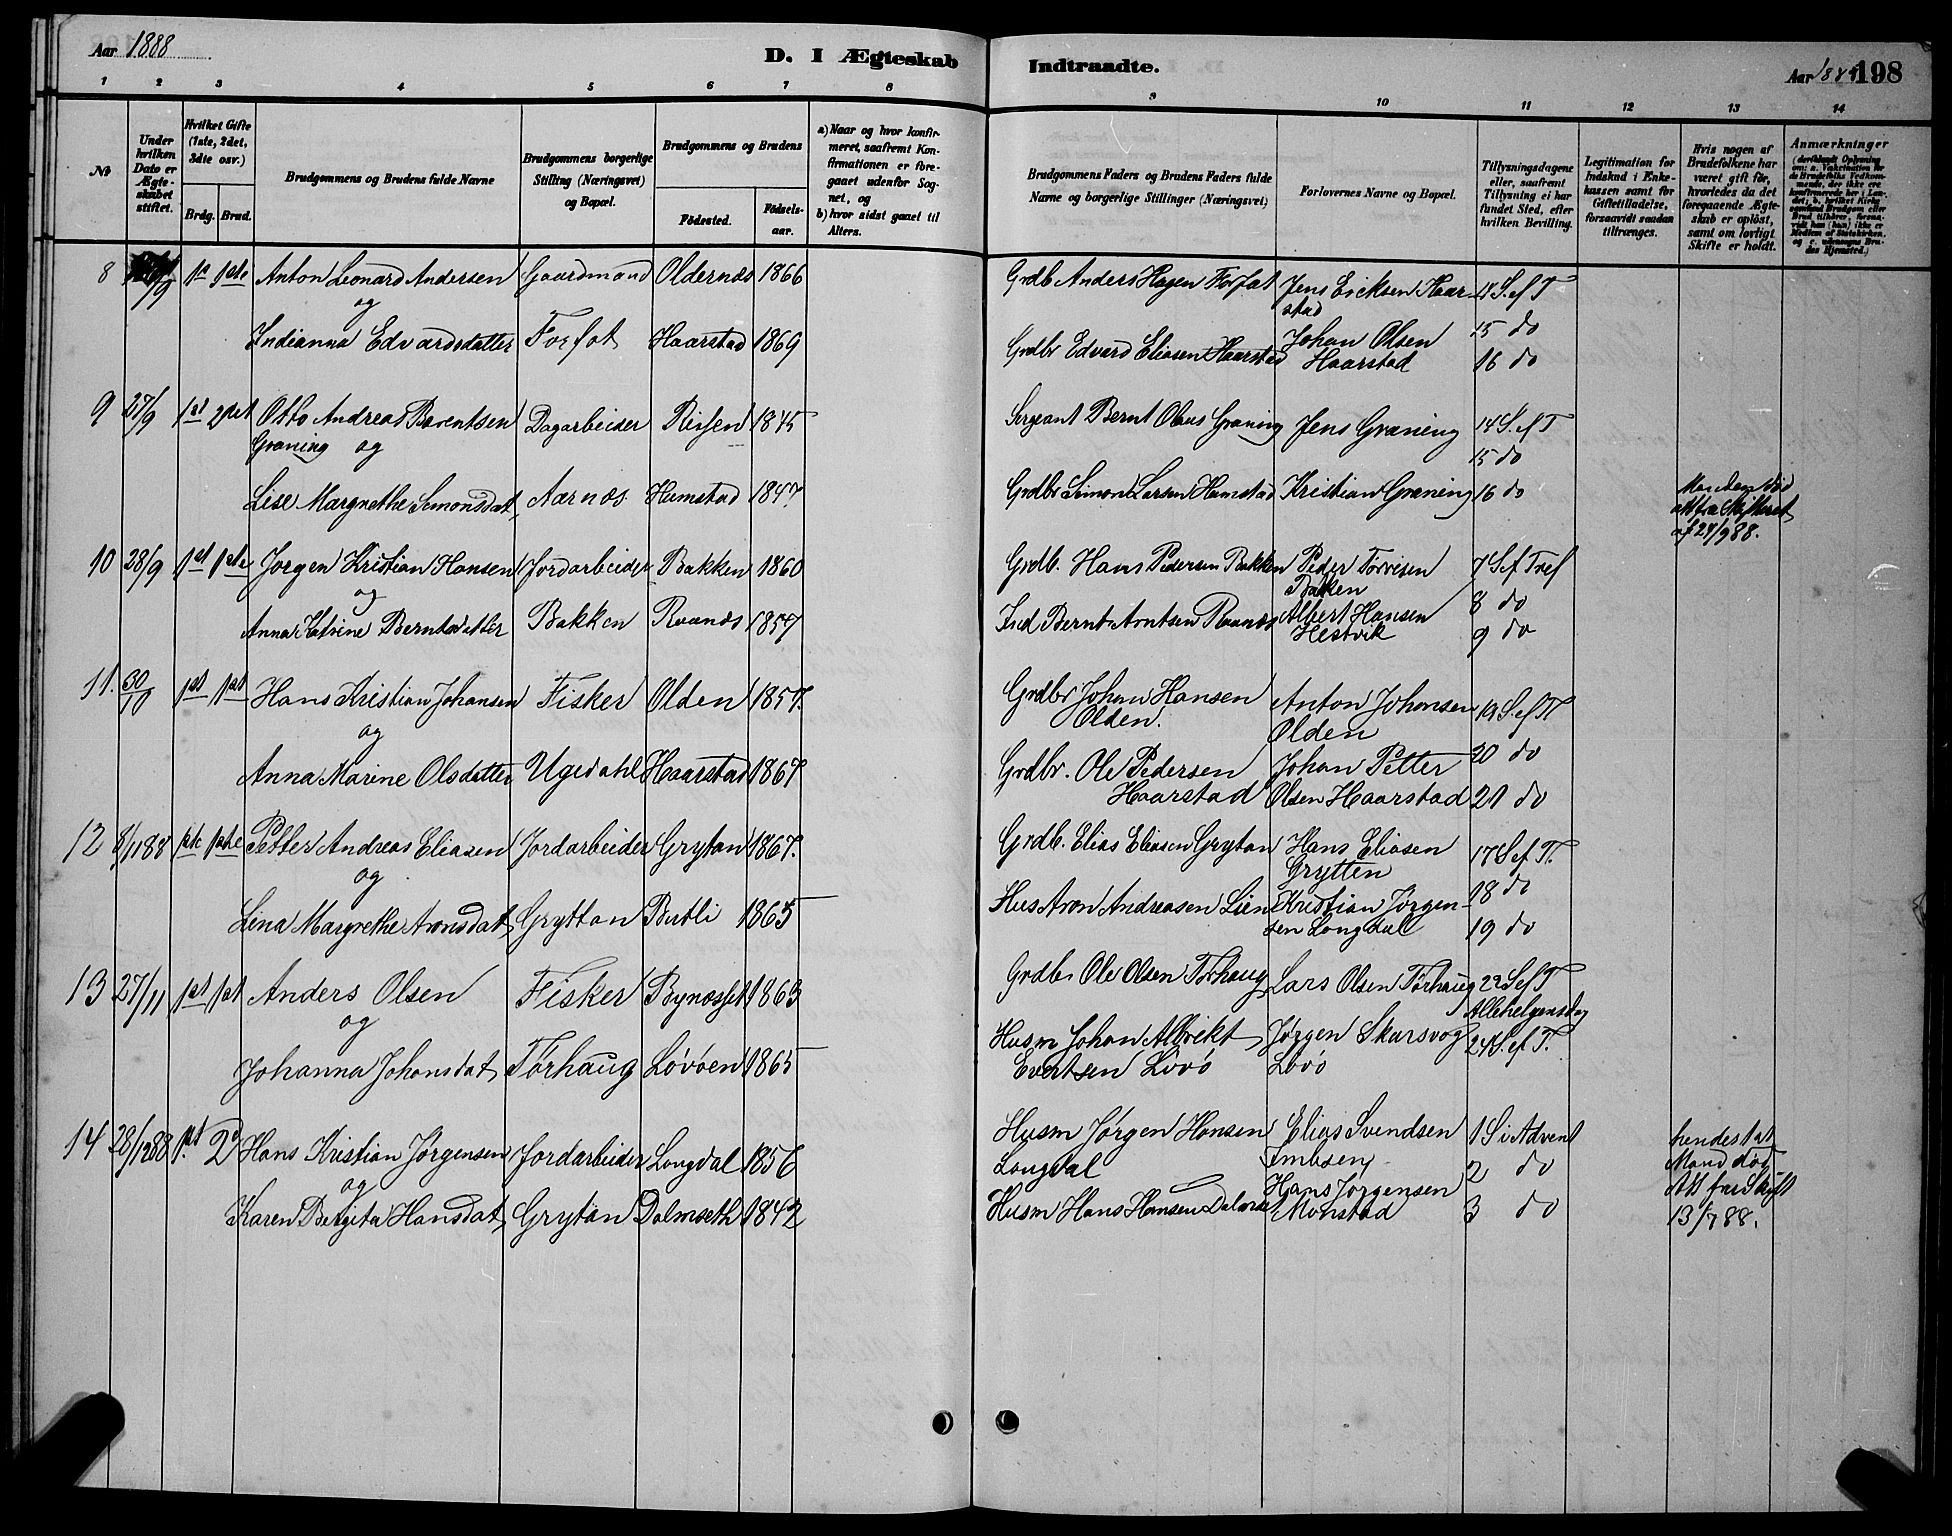 Aar 1888
D. I Ægteskab Indtraadte.
Aar 188 198
1 2 3 4 5 6 7 8 9 10 11 12 13 14
No
Under hvilken Dato er Ægteskabet stiftet.
Hvilket Gifte (1ste, 2det, 3die osv.)
Brdg. Brud.
Brudgommens og Brudens fulde Navne
Brudgommens borgerlige Stilling (Næringsvei) og Bopæl.
Brudgommens og Brudens
Födested. Födselsaar.
a) Naar og hvor konfirmeret, saafremt Konfirmationen er foregaaet udenfor Sognet, og
b) hvor sidst gaaet til Alters.
Brudgommens Faders og Brudens Faders fulde Navne og borgerlige Stillinger (Næringsvei)
Forlovernes Navne og Bopæl.
Tillysningsdagene eller, saafremt Tillysning ei har fundet Sted, efter hvilken Bevilling.
Legitimation for Indskud i Enkekassen samt for Giftetilladelse, forsaavidt saadan tiltrænges.
Hvis nogen af Brudefolkene har været gift før, hvorledes da det foregaaende Ægteskab er opløst, samt om lovligt Skifte er holdt.
Anmærkninger
8 /9 Anton Leonard Andersen Gaardmand Oldernæs 1866 Grdb Anders Hagen Forfot Jens Ericksen Haar- 14 S. ef T
og stad
Indianna Edvardsdatter Forfot Haarstad 1869 Grdbr Edvard Eliasen Haarstad Johan Olsen 15 do
Haarstad 16 do
9 27/9 1st 2det Otto Andreas Berentsen Dagarbeider Rissen 1845 Sergeant Bernt Olaus Græning Jens Græning 14 S. ef T
Græning og 15 do
Lise Margrethe Simonsdat Aarnæs Humstad 1847 Grdbr Simon Larsen Humstad Kristian Græning 16 do Manden død
Att fra Skifteret
af 24/988.
10 28/9 1st 1ste Jørgen Kristian Hansen Jordarbeider Bakken 1860 Grdb. Hans Pedersen Bakken Peder Torrisen 7 S ef Tref
og Bakken
Anna Katrine Berntsdatter Bakken Raanes 1857 Ind Bernt Arntsen Raanes Albert Hansen 8 do
Hestvik 9 do
11. 30/10 1st 1st Hans Kristian Johansen Fisker Olden 1857. Grdbr Johan Hansen Anton Johansen 19 S. ef T
og Olden. Olden
Anna Marine Olsdatter Ugedahl Haarstad 1867 Grdbr. Ole Pedersen Johan Petter 20 do
Haarstad Olsen Haarstad 21 do
12 8/1188 1ste 1ste Petter Andreas Eliasen Jordarbeider Grytan 1867. Grdb. Elias Eliasen Grytan Hans Eliasen 17 S ef T.
og Grytten
Lina Margrethe Aronsdat Gryttan Butli 1865 Hus Aron Andreasen Lien Kristian Jørgen- 18 do
sen Longdal 19 do
13 27/11 1st 1st Anders Olsen Fisker Bynæsset 1863 Grdb. Ole Olsen Tørhaug Lars Olsen Tørhaug 22 S ef T
og Allehelgensdag
Johanna Johansdat Tørhaug Løvøen 1865 Husm Johan Albrikt Jørgen Skarsvog 24 S. ef T.
Evertsen Løvø Løvø
14 28/1288 1st 2d Hans Kristian Jørgensen Jordarbeider Longdal 1856 Husm Jørgen Hansen Elias Svendsen 1 S i Advent hendes 1st
og Longdal Embsen 2 do Mand død
Karen Bergita Hansdat Grytan Dalmseth 1842 Husm Hans Hansen Hans Jørgensen Att fra Skift
Monstad 3 do 13/788.